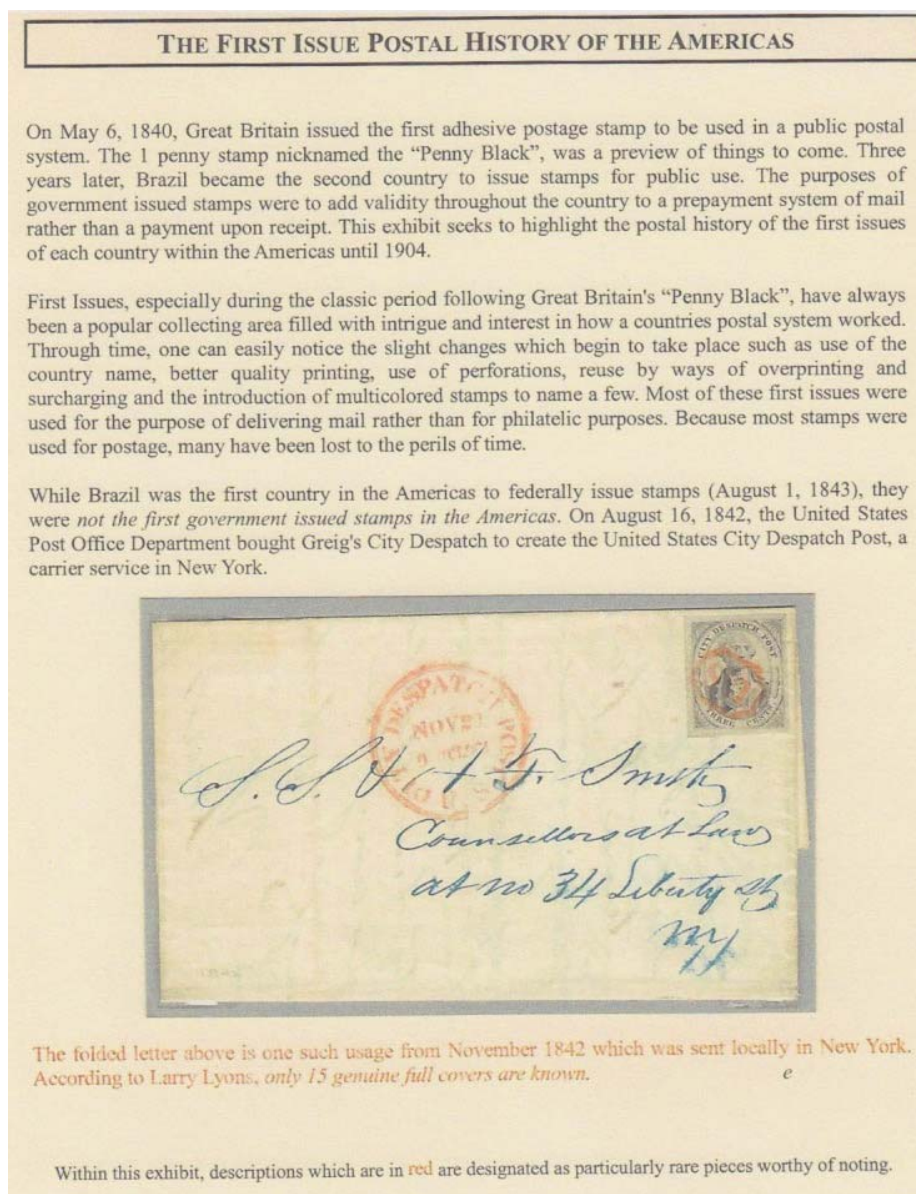 THE FIRST ISSUE POSTAL HISTORY OF THE AMERICAS
On May 6, 1840, Great Britain issued the first adhesive postage stamp to be used in a public postal
system. The 1 penny stamp nicknamed the “Penny Black”, was a preview of things to come. Three
years later, Brazil became the second country to issue stamps for public use. The purposes of
government issued stamps were to add validity throughout the country to a prepayment system of mail
rather than a payment upon receipt. This exhibit seeks to highlight the postal history of the first issues
of each country within the Americas until 1904.
First Issues, especially during the classic period following Great Britain's “Penny Black”, have always
been a popular collecting area filled with intrigue and interest in how a countries postal system worked.
Through time, one can easily notice the slight changes which begin to take place such as use of the
country name, better quality printing, use of perforations, reuse by ways of overprinting and
surcharging and the introduction of multicolored stamps to name a few. Most of these first issues were
used for the purpose of delivering mail rather than for philatelic purposes. Because most stamps were
used for postage, many have been lost to the perils of time.
While Brazil was the first country in the Americas to federally issue stamps (August 1, 1843), they
were not the first government issued stamps in the Americas. On August 16, 1842, the United States
Post Office Department bought Greig's City Despatch to create the United States City Despatch Post, a
carrier service in New York.
CITY DESPATCH POST
THREE CENTS
CITY DESPATCH POST
NOV
S. S. & A F. Smith
Counsellors at Law
at no 34 Liberty St
NY
The folded letter above is one such usage from November 1842 which was sent locally in New York.
According to Larry Lyons, only 15 genuine full covers are known.
e
Within this exhibit, descriptions which are in red are designated as particularly rare pieces worthy of noting.